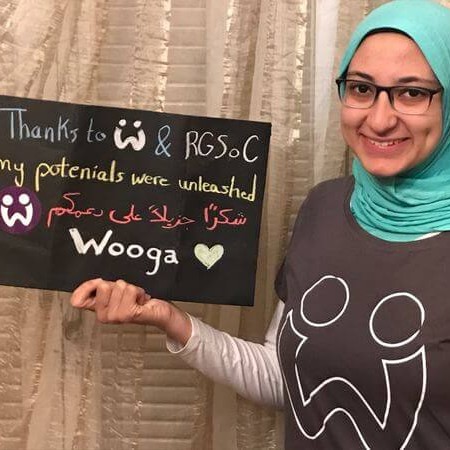 Thanks to W & RGSoC
my potenials were unleashed
شكرًا جزيلاً على دعمكم
Wooga